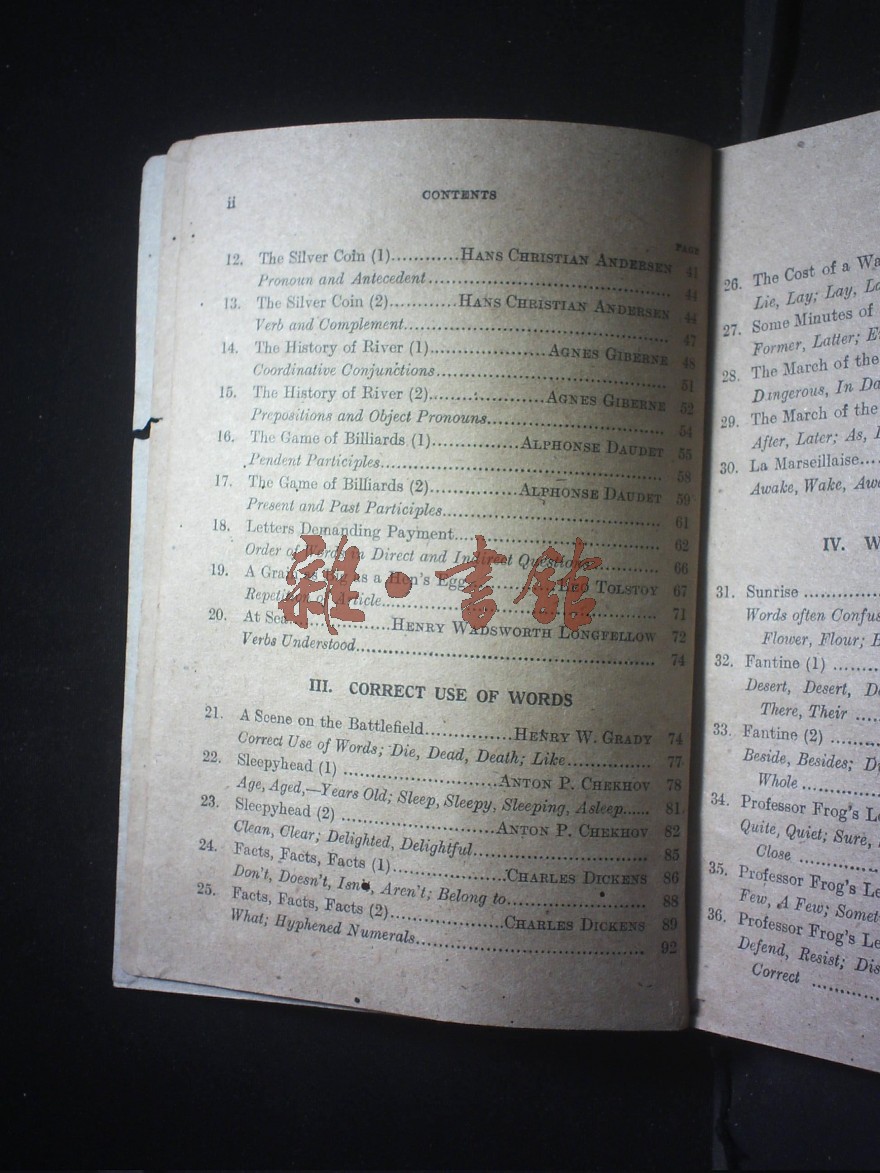 ii
CONTENTS
PAGE
12. The Silver Coin (1)............HANS CHRISTIAN ANDERSEN 41
Pronoun and Antecedent.......... 44
13. The Silver Coin (2)............HANS CHRISTIAN ANDERSEN 44
Verb and Complement.......... 47
14. The History of River (1)..........AGNES GIBERNE 48
Coordinative Conjunctions.......... 51
15. The History of River (2)..........AGNES GIBERNE 52
Prepositions and Object Pronouns.......... 54
16. The Game of Billiards (1)..........ALPHONSE DAUDET 55
Pendent Participles.......... 58
17. The Game of Billiards (2)..........ALPHONSE DAUDET 59
Present and Past Participles.......... 61
18. Letters Demanding Payment.......... 62
Order of Words in Direct and Indirect Questions.......... 66
19. A Grain as Big as a Hen's Egg..........LEO TOLSTOY 67
Repetition of Article.......... 71
20. At Sea..........HENRY WADSWORTH LONGFELLOW 72
Verbs Understood.......... 74
雜·書館
III. CORRECT USE OF WORDS
21. A Scene on the Battlefield..........HENRY W. GRADY 74
Correct Use of Words; Die, Dead, Death; Like.......... 77
22. Sleepyhead (1) ..........ANTON P. CHEKHOV 78
Age, Aged,—Years Old; Sleep, Sleepy, Sleeping, Asleep...... 81
23. Sleepyhead (2) ..........ANTON P. CHEKHOV 82
Clean, Clear; Delighted, Delightful.......... 85
24. Facts, Facts, Facts (1)..........CHARLES DICKENS 86
Don't, Doesn't, Isn't, Aren't; Belong to.......... 88
25. Facts, Facts, Facts (2)..........CHARLES DICKENS 89
What; Hyphened Numerals.......... 92
26. The Cost of a Wa
Lie, Lay; Lay, La
27. Some Minutes of
Former, Latter; E
28. The March of the
Dangerous, In Da
29. The March of the
After, Later; As,
30. La Marseillaise....
Awake, Wake, Awa
IV. W
31. Sunrise ..........
Words often Confus
Flower, Flour;
32. Fantine (1) ........
Desert, Desert, D
There, Their ....
33. Fantine (2) ........
Beside, Besides; D
Whole ..........
34. Professor Frog's Le
Quite, Quiet; Sure,
Close ..........
35. Professor Frog's Le
Few, A Few; Somet
36. Professor Frog's Le
Defend, Resist; Dis
Correct ..........